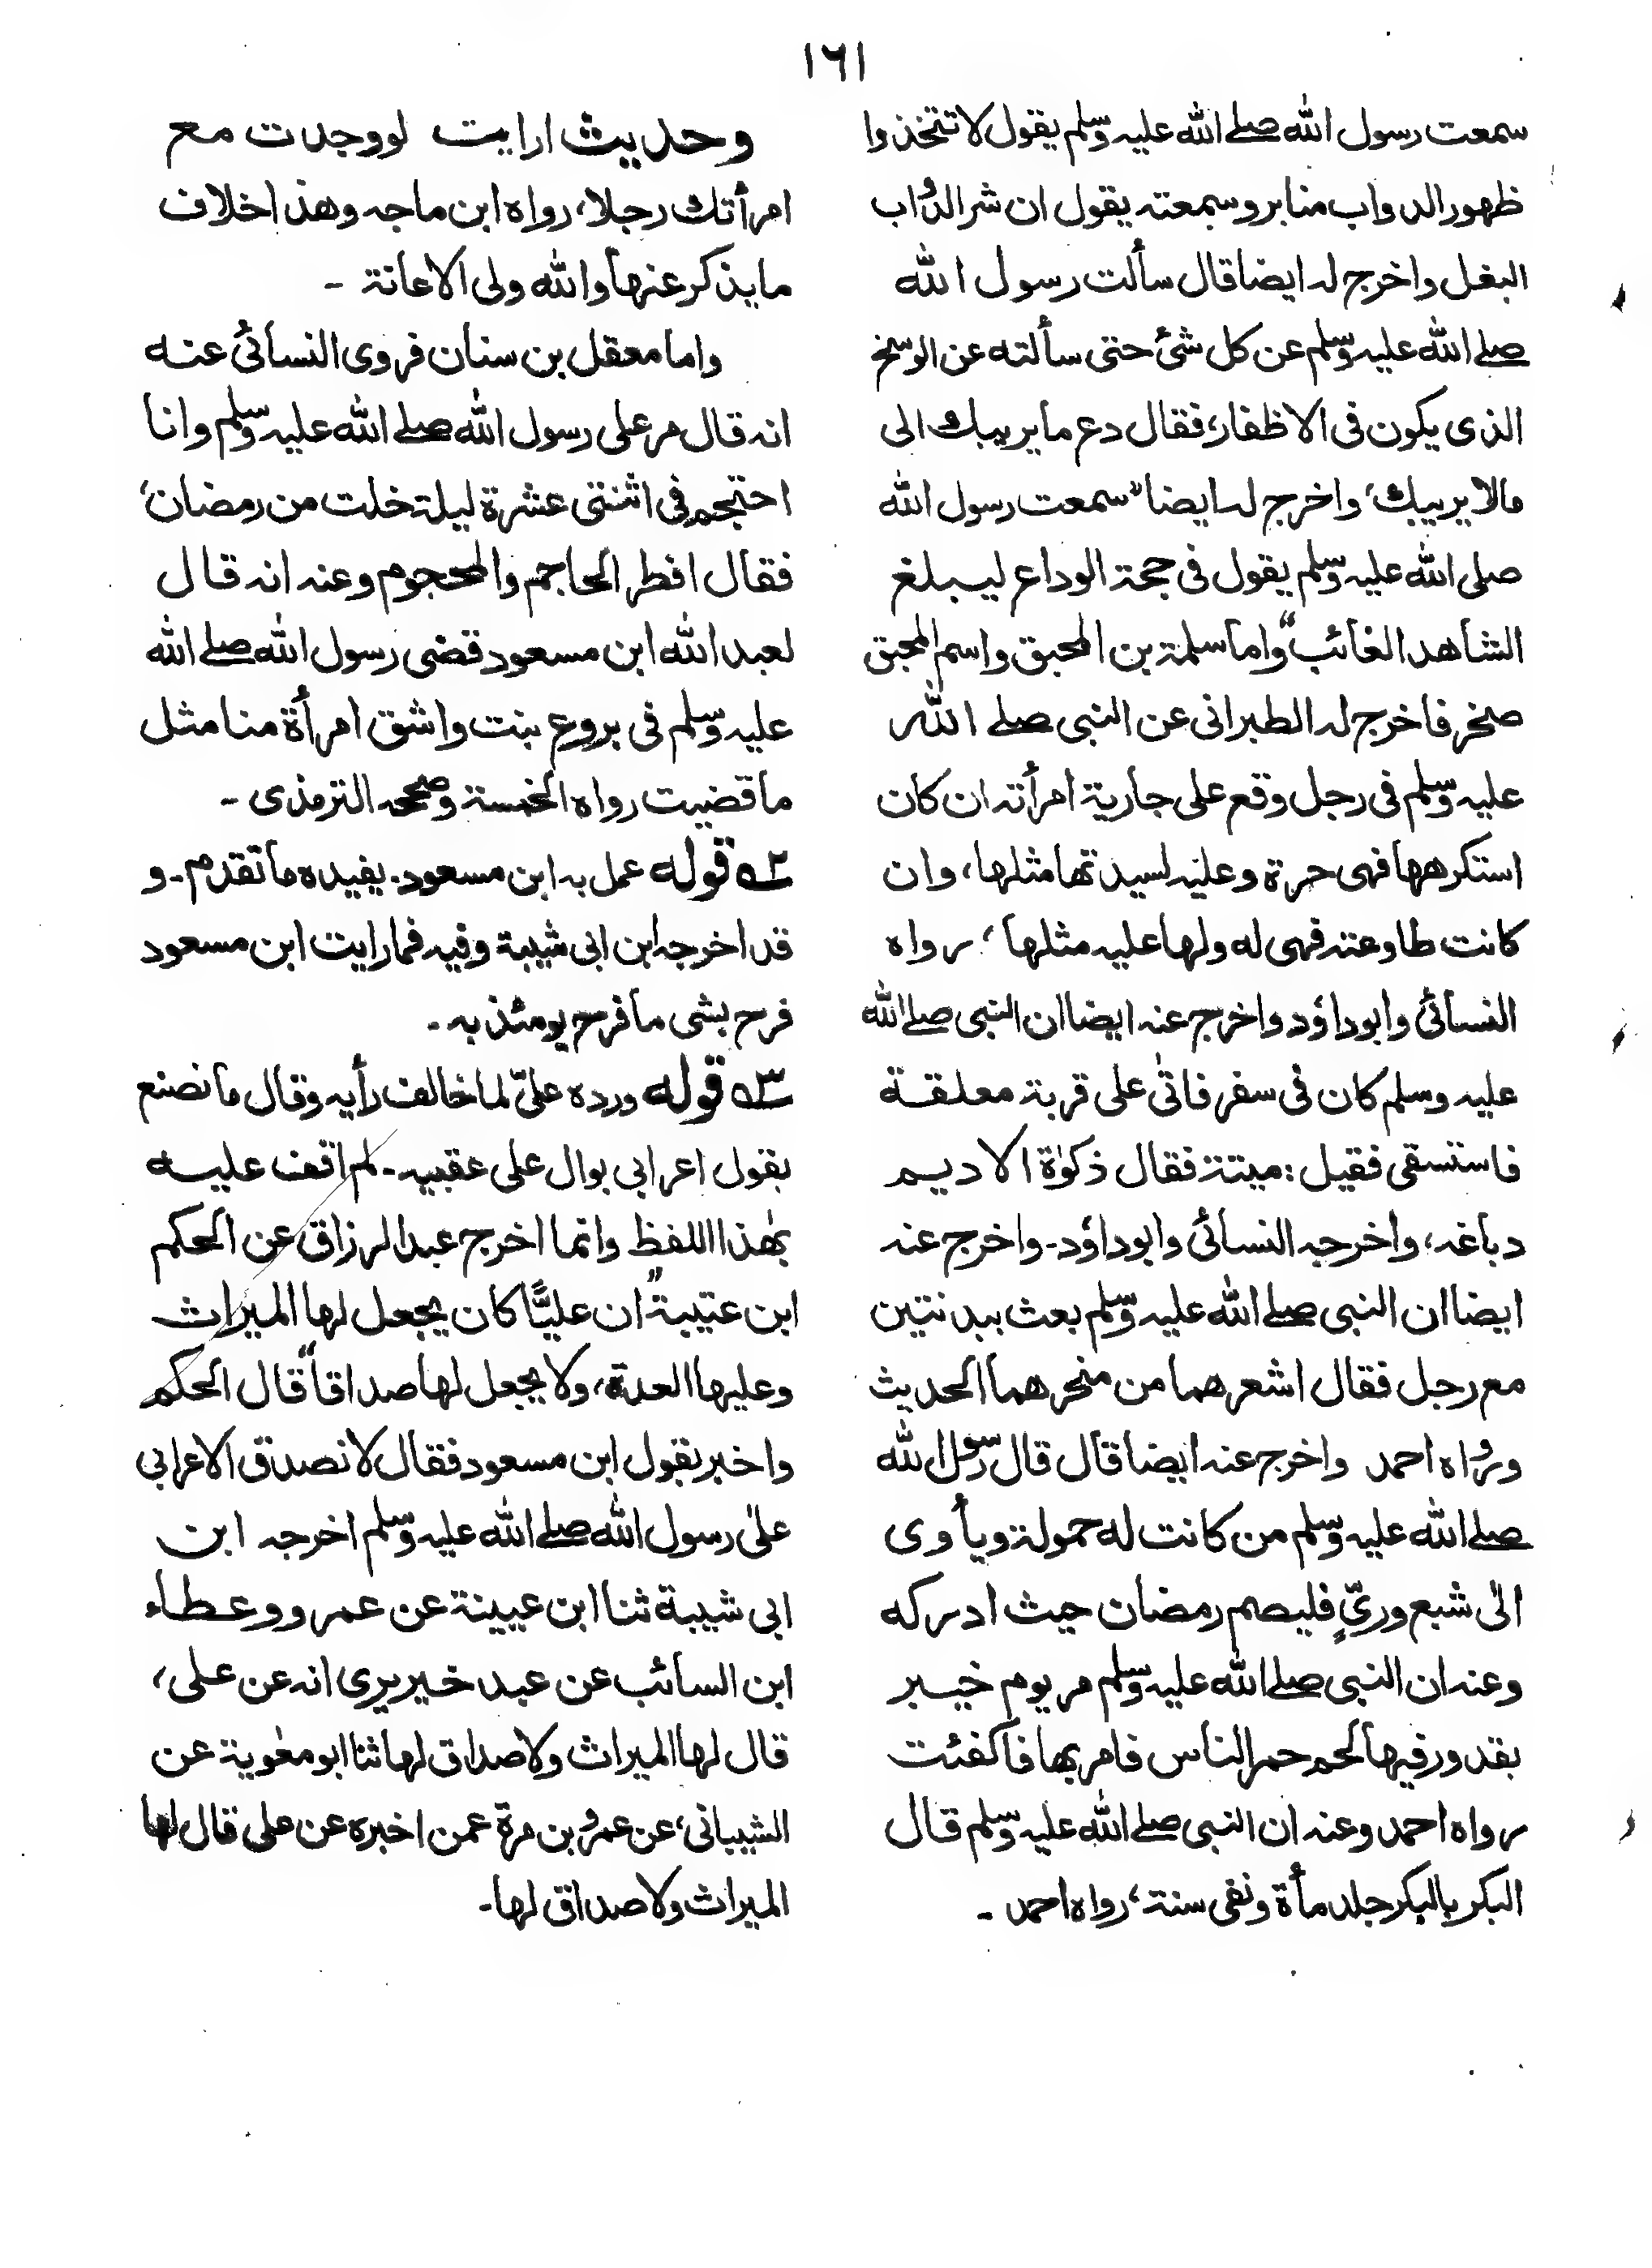 ١٦١
سمعت رسول الله صلے الله علیہ وسلم یقول لا تتخذوا
ظهور الدواب منابر وسمعته یقول ان شر الدواب
البغل واخرج له ایضا قال سألت رسول الله
صلے الله علیہ وسلم عن کل شئ حتی سألته عن الوسخ
الذی یکون فی الاظفار، فقال دع ما یریبك الی
مالا یریبك، واخرج له ایضا "سمعت رسول الله
صلی الله علیہ وسلم یقول فی حجة الوداع لیبلغ
الشاهد الغائب" واما سلمة بن المحبق واسم المحبق
صخر فاخرج له الطبرانی عن النبی صلے الله
علیہ وسلم فی رجل وقع علی جاریة امرأته ان کان
استکرهها فهی حرة وعلیه لسیدتها مثلها، وان
کانت طاوعته فهی له ولها علیه مثلها، رواه
النسائی وابوداؤد واخرج عنه ایضا ان النبی صلے الله
علیہ وسلم کان فی سفر فاتٰی علی قربة معلقة
فاستسقی فقیل: میتة فقال ذکوٰة الادیم
دباغه، واخرجه النسائی وابوداؤد۔ واخرج عنه
ایضا ان النبی صلے الله علیہ وسلم بعث ببدنتین
مع رجل فقال اشعرهما من منحرهما الحدیث
ورواه احمد واخرج عنه ایضا قال قال رسول الله
صلے الله علیہ وسلم من کانت له حمولة ویأوی
الٰی شبع وریٍّ فلیصم رمضان حیث ادرکه
وعنه ان النبی صلے الله علیہ وسلم مر یوم خیبر
بقدور فیها لحم حمر الناس فامر بها فاکفئت
رواه احمد وعنه ان النبی صلے الله علیہ وسلم قال
البکر بالبکر جلد مأة ونفی سنة، رواه احمد ۔
وحدیث ارایت لو وجدت مع
امرأتك رجلا، رواه ابن ماجه وهذا خلاف
ما یذکر عنها والله ولی الاعانة ۔
واما معقل بن سنان فروی النسائی عنه
انه قال مر علی رسول الله صلے الله علیہ وسلم وانا
احتجم فی اثنتی عشرة لیلة خلت من رمضان،
فقال افطر الحاجم والمحجوم وعنه انه قال
لعبد الله ابن مسعود قضی رسول الله صلے الله
علیہ وسلم فی بروع بنت واشق امرأة منا مثل
ما قضیت رواه الخمسة وصححه الترمذی ۔
٢ قوله عمل به ابن مسعود۔ یفیده ما تقدم۔ و
قد اخرجه ابن ابی شیبة وفیه فما رایت ابن مسعود
فرح بشی ما فرح یومئذ به ۔
٣ قوله ورده علیّ لما خالف رأیه وقال ما نصنع
بقول اعرابی بوال علی عقبیه۔ لم اقف علیه
بهٰذا اللفظ وانما اخرج عبد الرزاق عن الحکم
ابن عتیبة "ان علیًّا کان یجعل لها المیراث
وعلیها العدة، ولا یجعل لها صداقا" قال الحکم
واخبر بقول ابن مسعود فقال لا نصدق الاعرابی
علیٰ رسول الله صلے الله علیہ وسلم اخرجه ابن
ابی شیبة ثنا ابن عیینة عن عمرو وعطاء
ابن السائب عن عبد خیر یری انه عن علی،
قال لها المیراث ولا صداق لها ثنا ابو معٰویة عن
الشیبانی، عن عمرو بن مرة عمن اخبره عن علی قال لها
المیراث ولا صداق لها۔